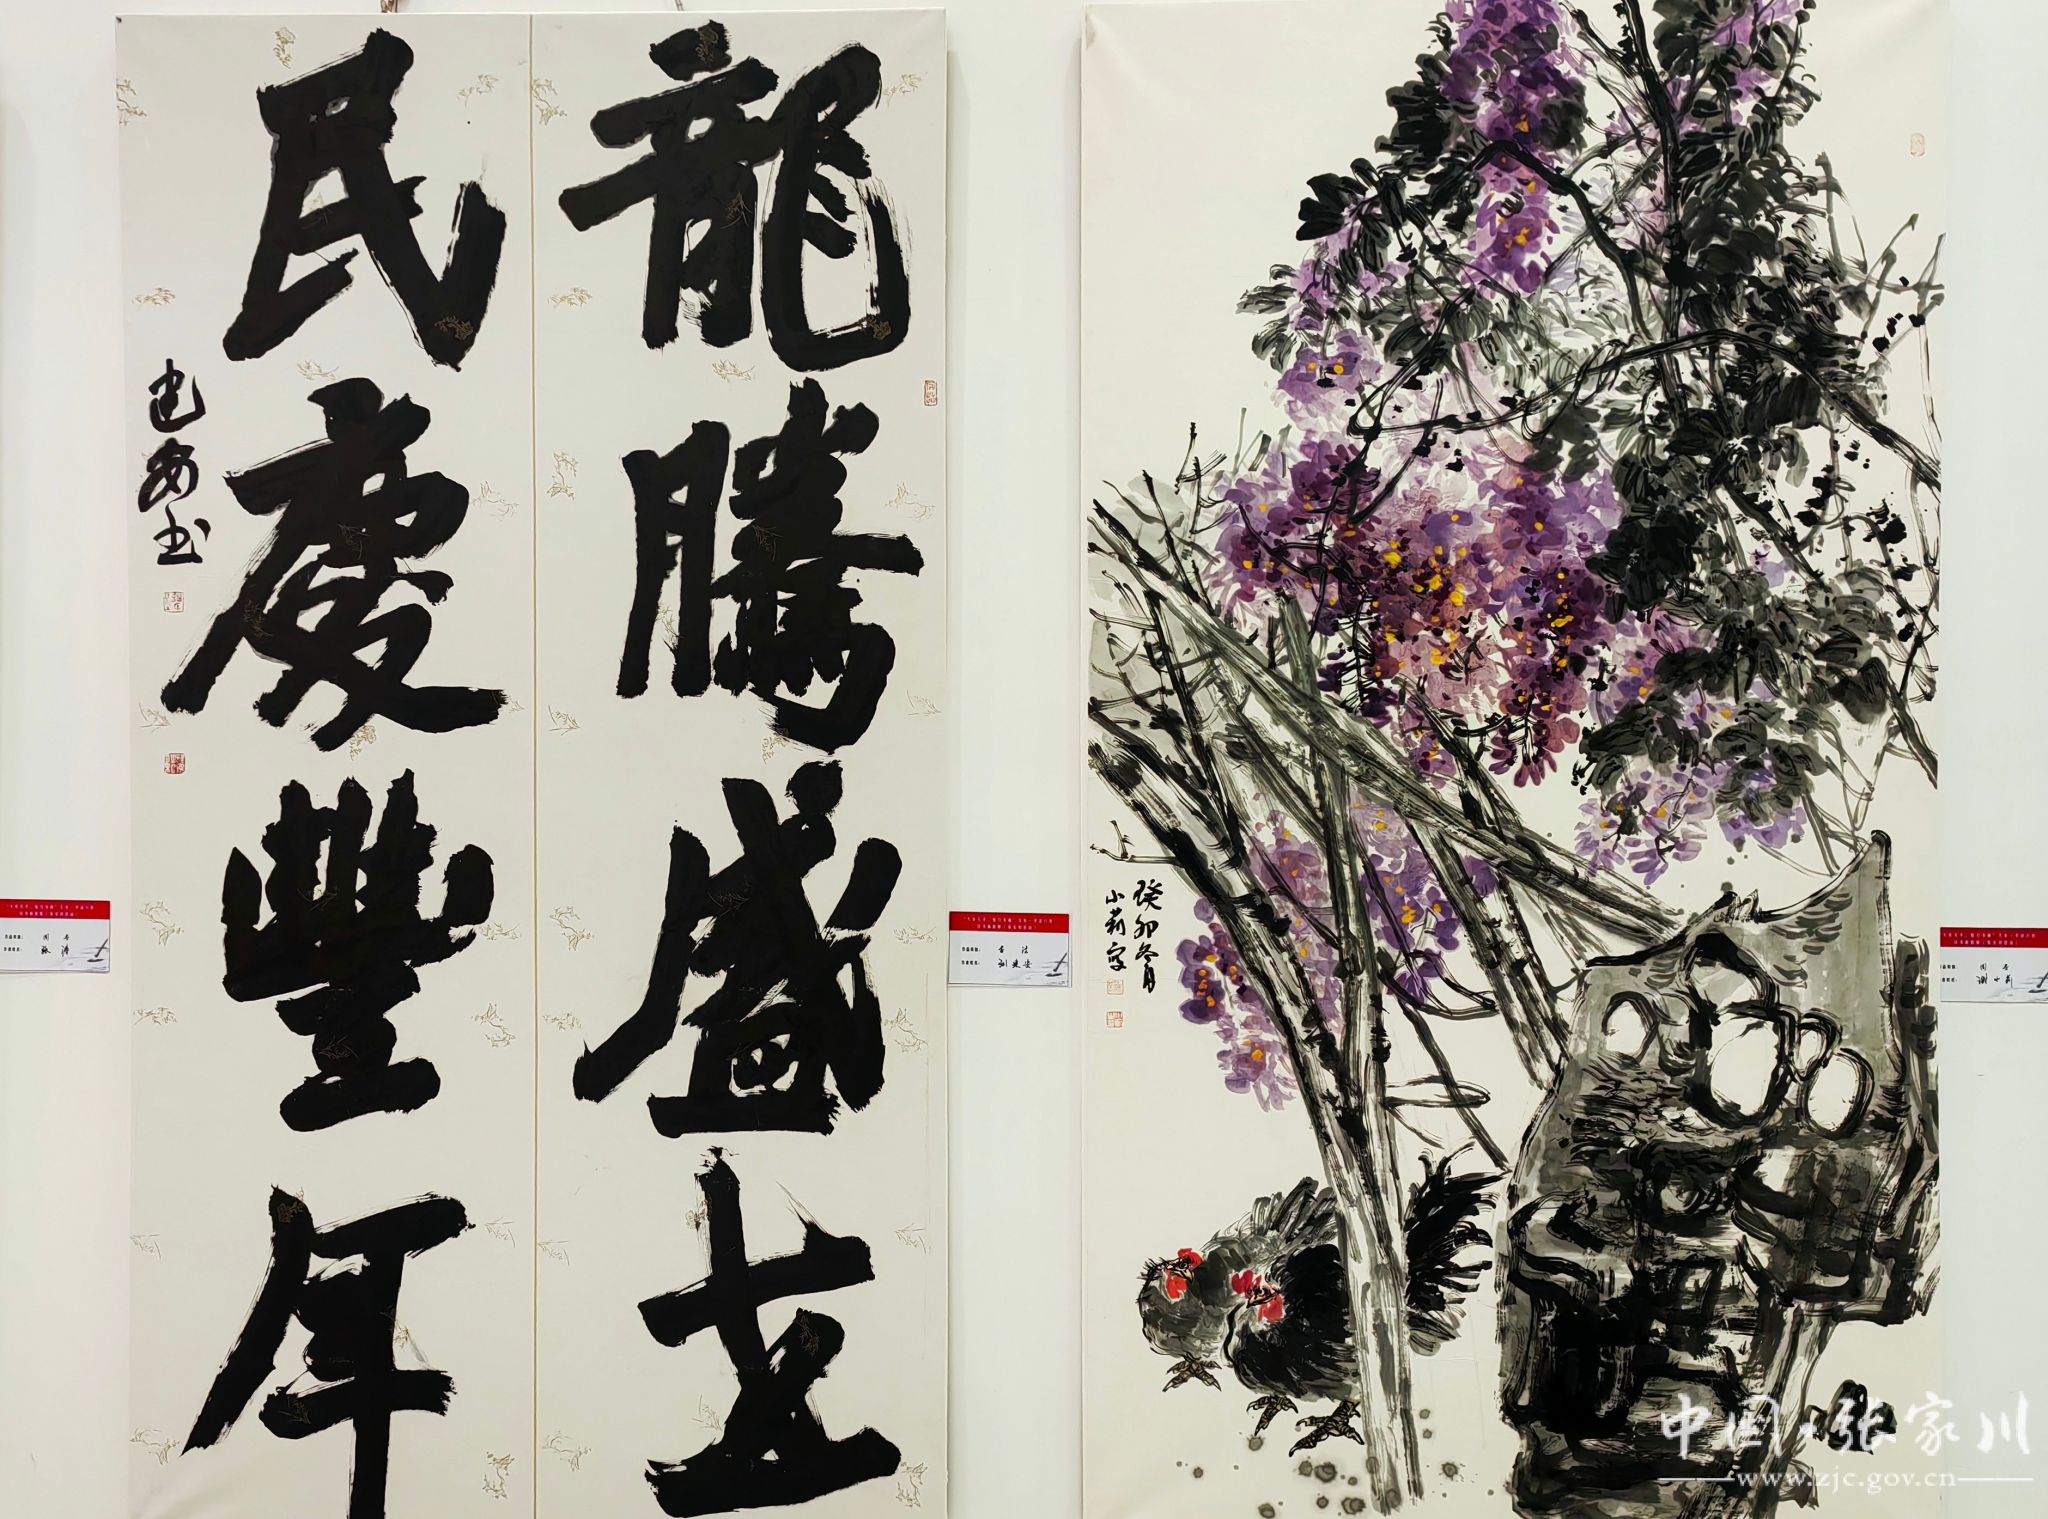 龍騰盛世
民慶豐年
建安书
癸卯冬月
小莉写
作品类别: 国画
作者姓名: 张涛
作品类别: 书法
作者姓名: 刘建安
作品类别: 国画
作者姓名: 谢小莉
中国·张家川
www.zjc.gov.cn